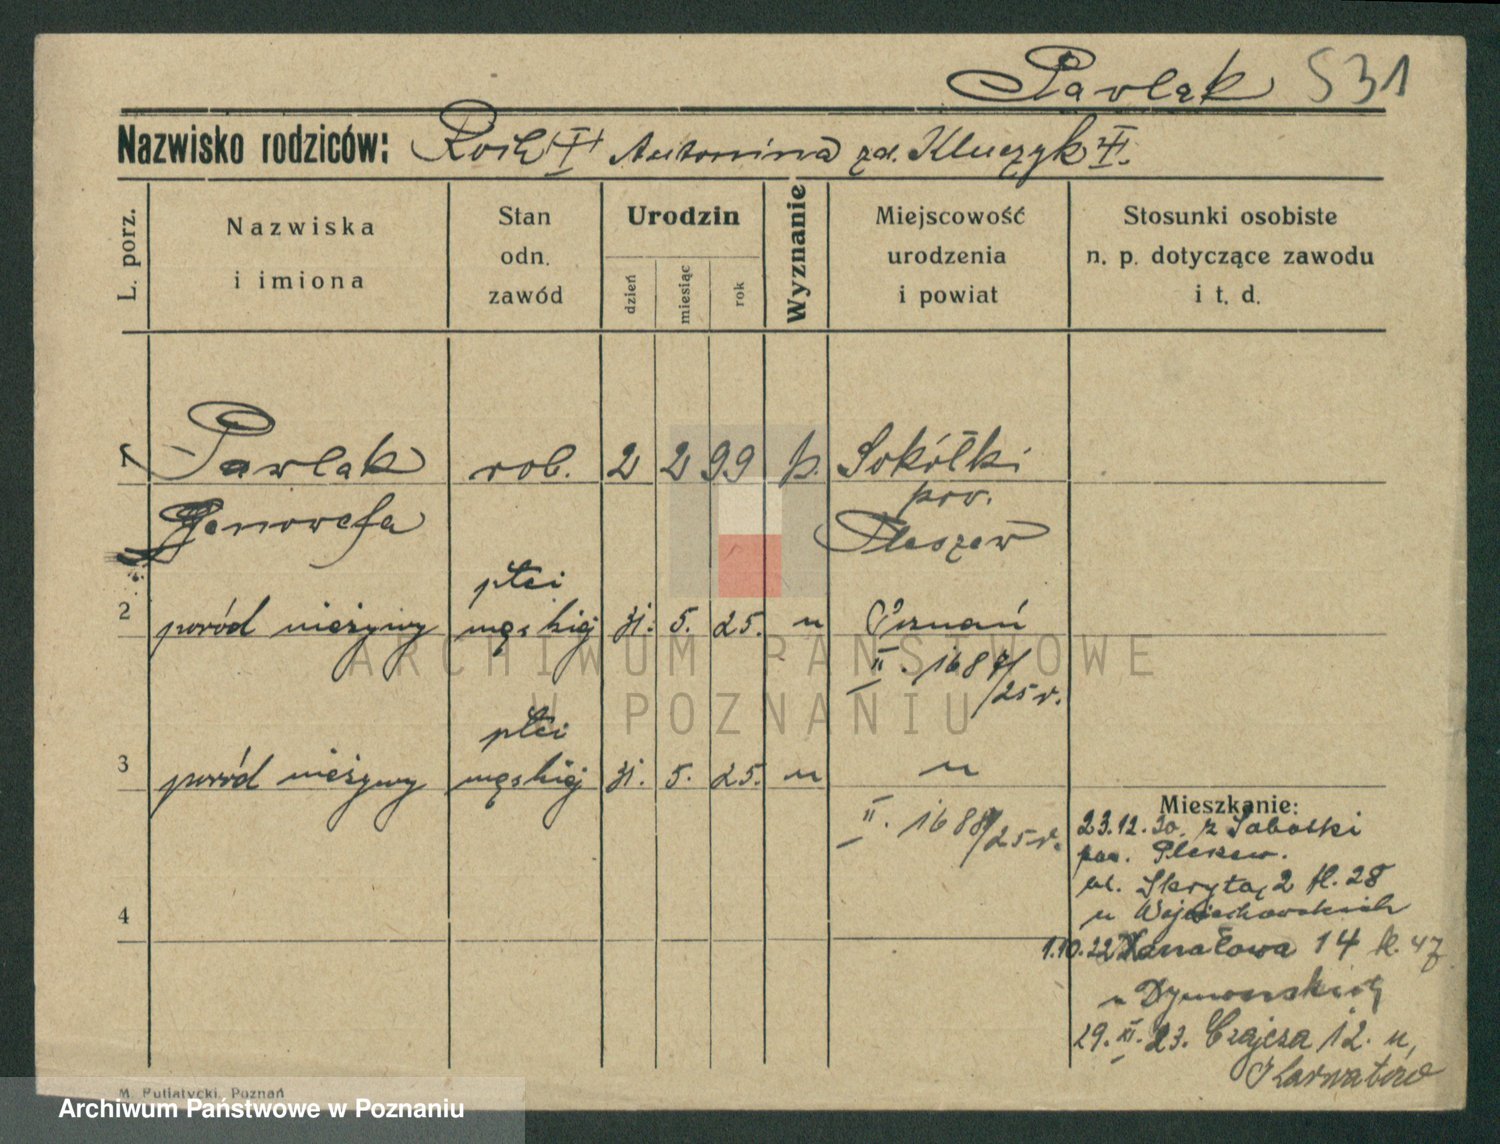 Pawlak 531
Nazwisko rodziców: Roch † Antonina zd. Kluczyk †.
L. porz.
Nazwiska
i imiona
Stan
odn.
zawód
Urodzin
dzień
miesiąc
rok
Wyznanie
Miejscowość
urodzenia
i powiat
Stosunki osobiste
n. p. dotyczące zawodu
i t. d.
1 Pawlak rob. 2 2 99 k. Sokółki
Genowefa pow.
Pleszew
płci
2 poród nieżywy męskiej 31. 5. 25. " Poznań
II. 1687/25 r.
płci
3 poród nieżywy męskiej 31. 5. 25. " "
II. 1688/25 r.
Mieszkanie:
23.12. z
pow. Pleszew.
ul. Skryta, 2 H. 28
u Wojciechowskich
4
1.10.22 Kanałowa 14 H. 47
u
29. XI. 23. 12. u
ARCHIWUM PAŃSTWOWE
W POZNANIU
M. Putiatycki, Poznań
Archiwum Państwowe w Poznaniu